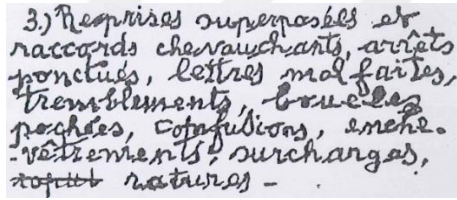 3.) Reprises superposées et
raccords chevauchants, arrêts
ponctués, lettres mal faites,
tremblements, boucles
pochées, confusions, enche-
-vêtrements, surcharges,
ratures -